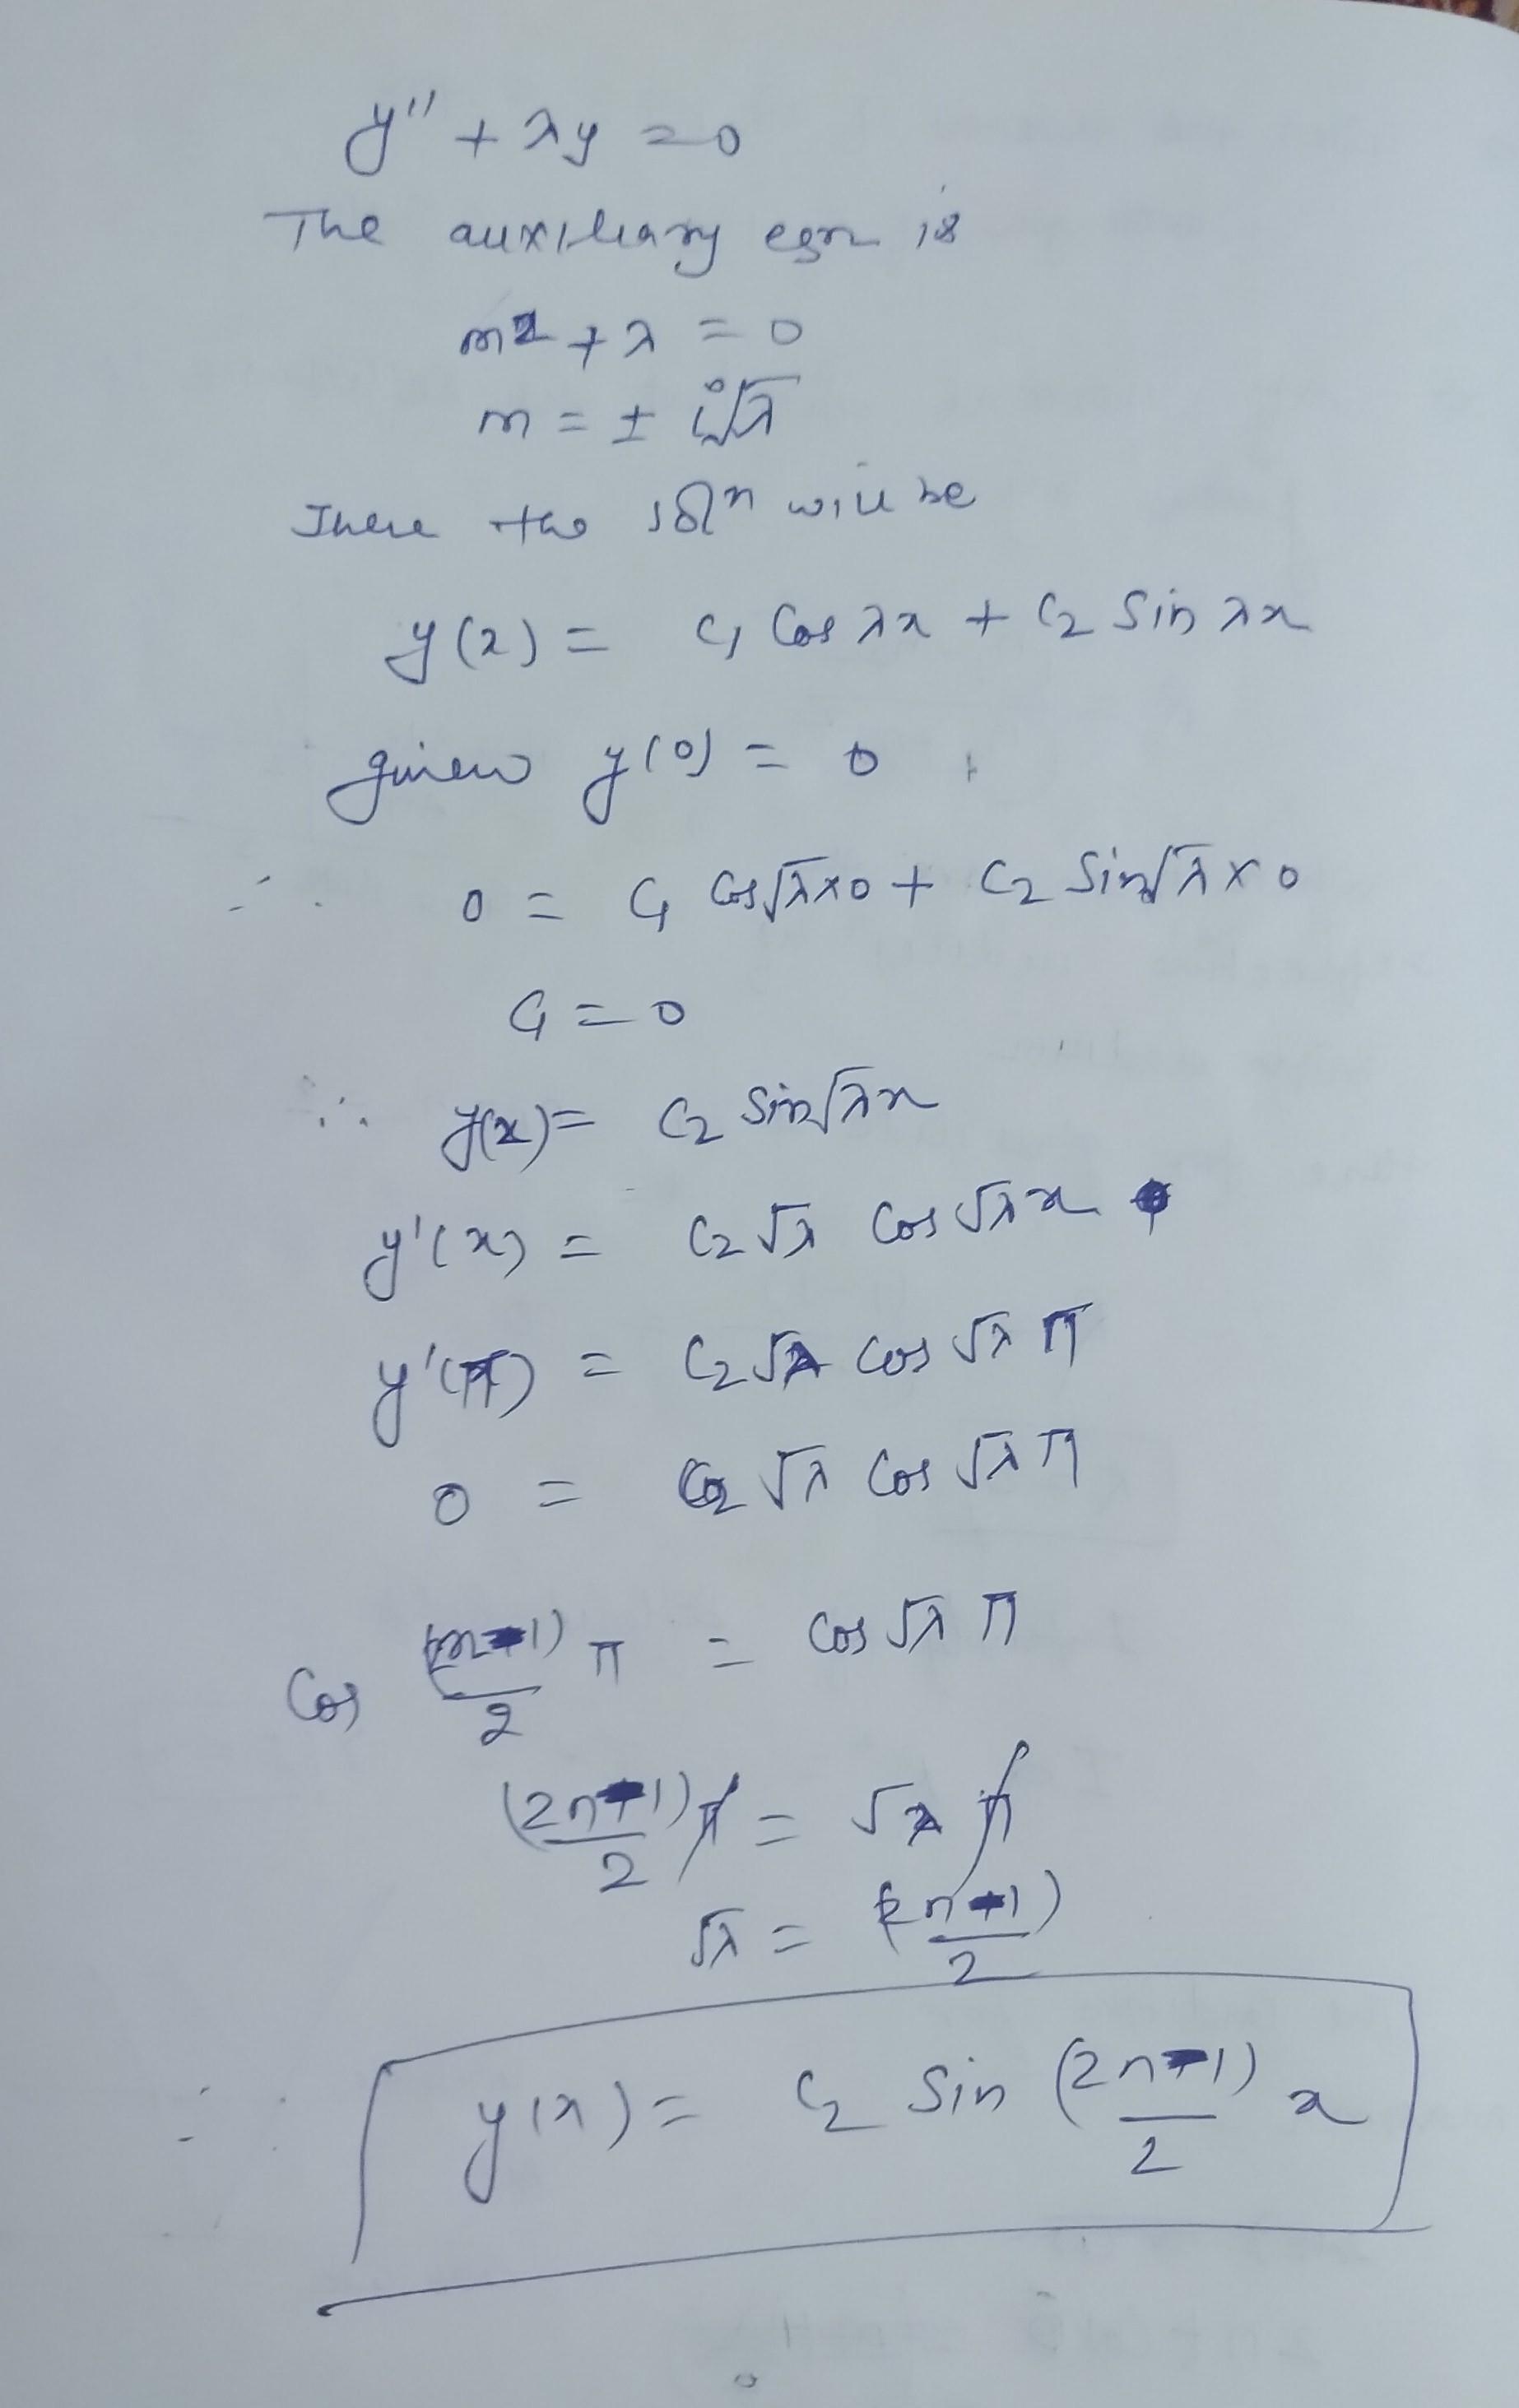 y'' + λy = 0
The auxiliary eqn is
m² + λ = 0
m = ± i√λ
There the solⁿ will be
y(x) = c₁ Cos λx + c₂ Sin λx
given y(0) = 0
∴ 0 = c₁ Cos√λ×0 + c₂ Sin√λ×0
c₁ = 0
∴ y(x) = c₂ Sin√λx
y'(x) = c₂√λ Cos √λx
y'(π) = c₂√λ Cos √λ π
0 = c₂ √λ Cos √λ π
Cos (2n-1)/2 π = Cos √λ π
(2n-1)/2 π = √λ π
√λ = (2n-1)/2
∴ y(x) = c₂ Sin (2n-1)/2 x